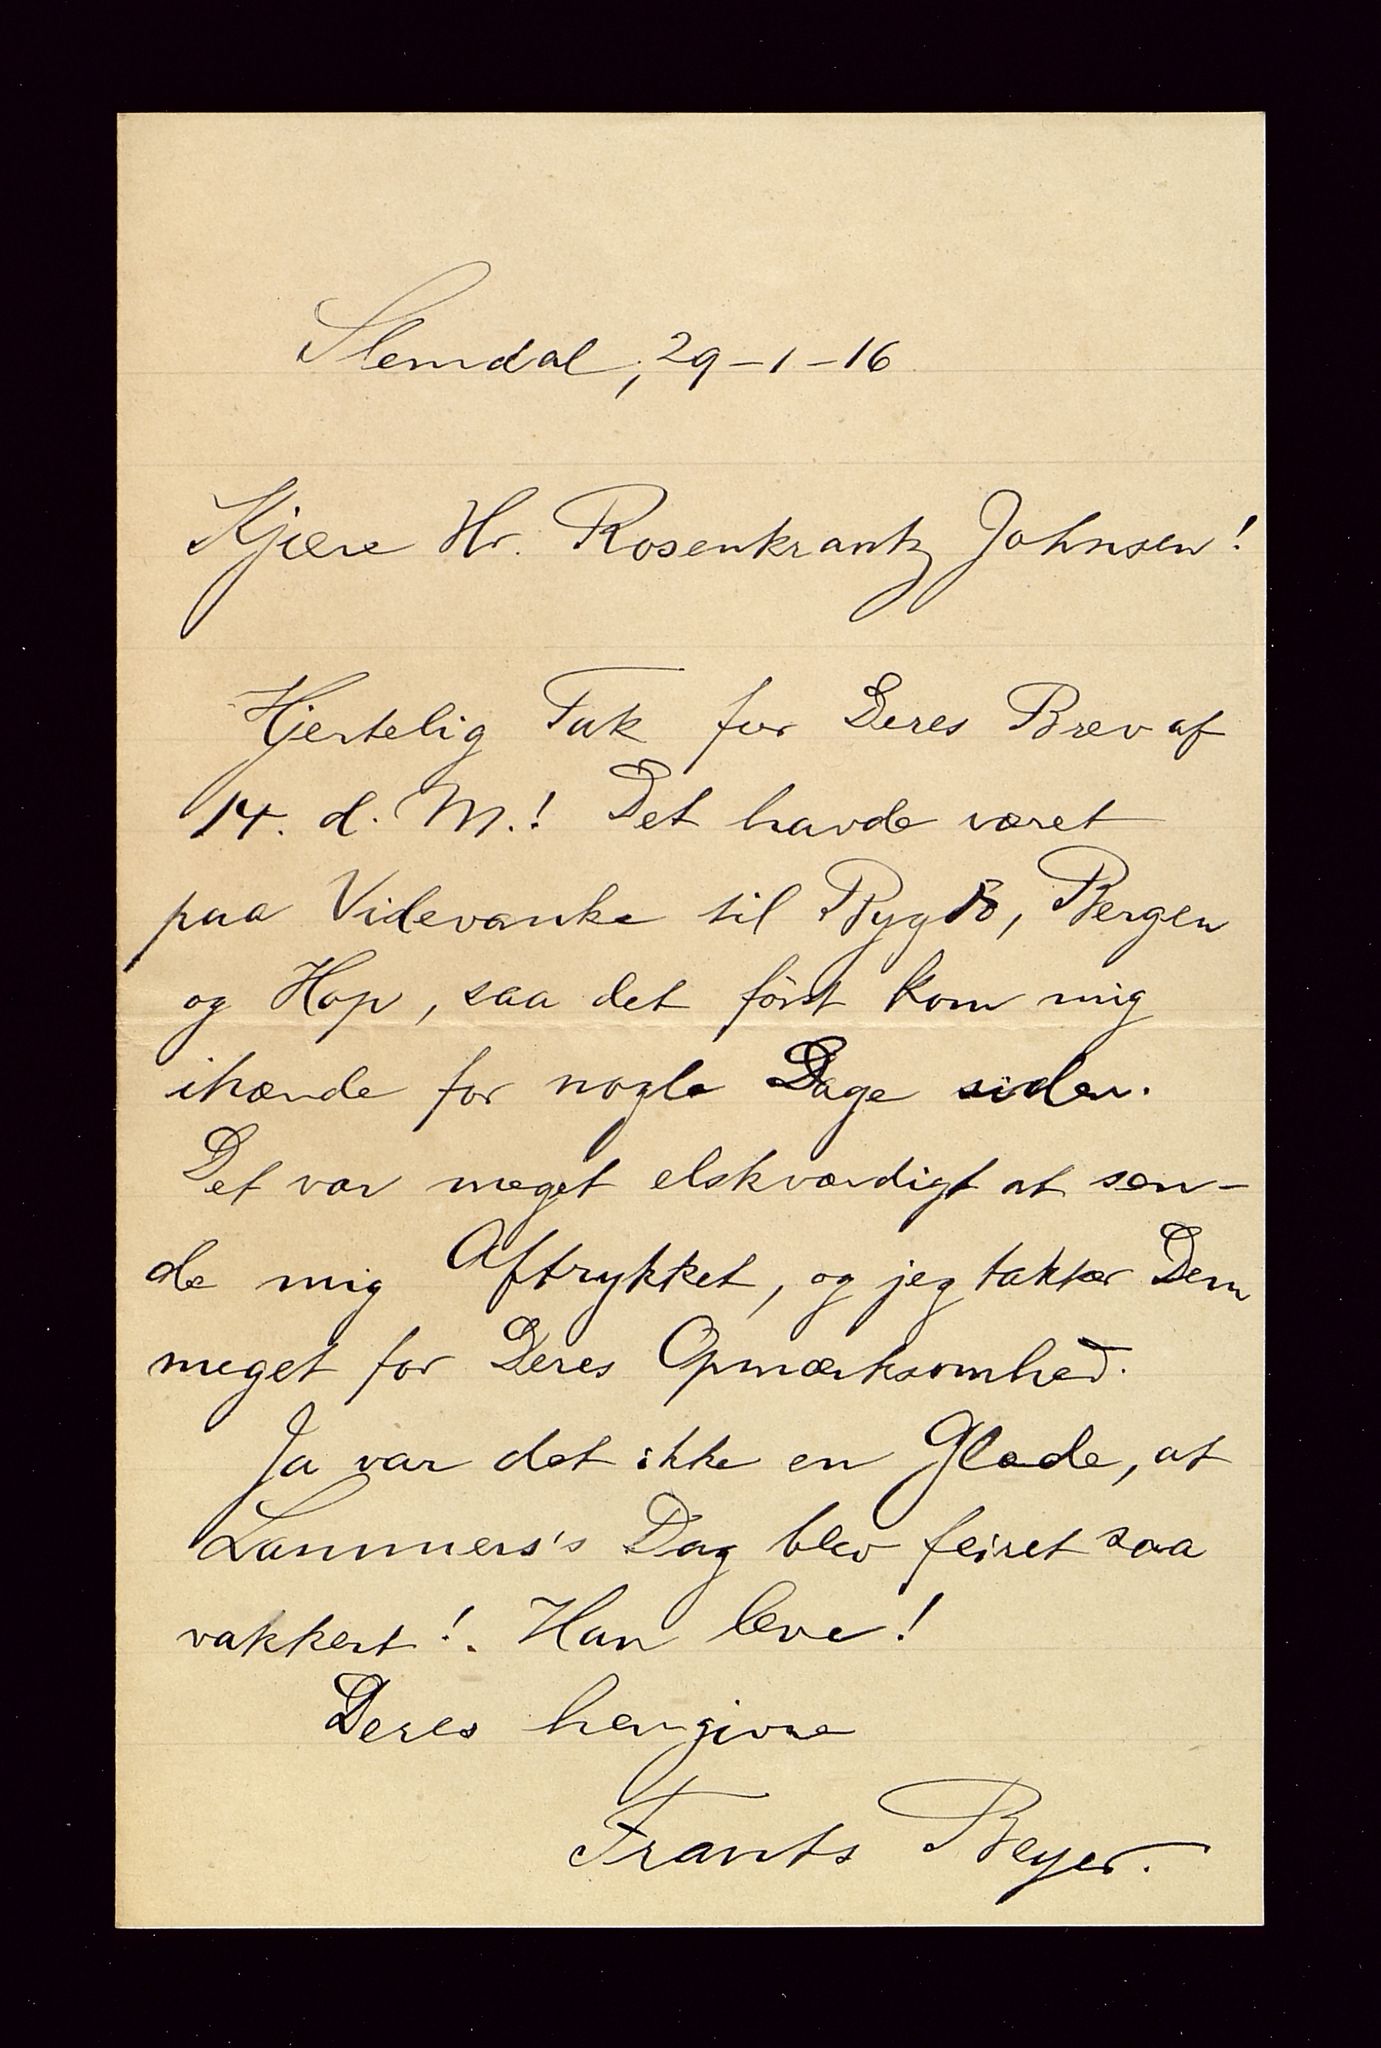 Slemdal, 29-1-16
Kjære Hr. Rosenkrantz Johnsen!
Hjertelig Tak for Deres Brev af
14. d. M.! Det havde været
paa Videvanke til Bygdö, Bergen
og Hop, saa det först kom mig
ihænde for nogle Dage siden.
Det var meget elskværdigt at sen-
de mig Aftrykket, og jeg takker Dem
meget for Deres Opmærksomhed.
Ja var det ikke en Glæde, at
Lammers's Dag blev feiret saa
vakkert! Han leve!
Deres hengivne
Frants Beyer.